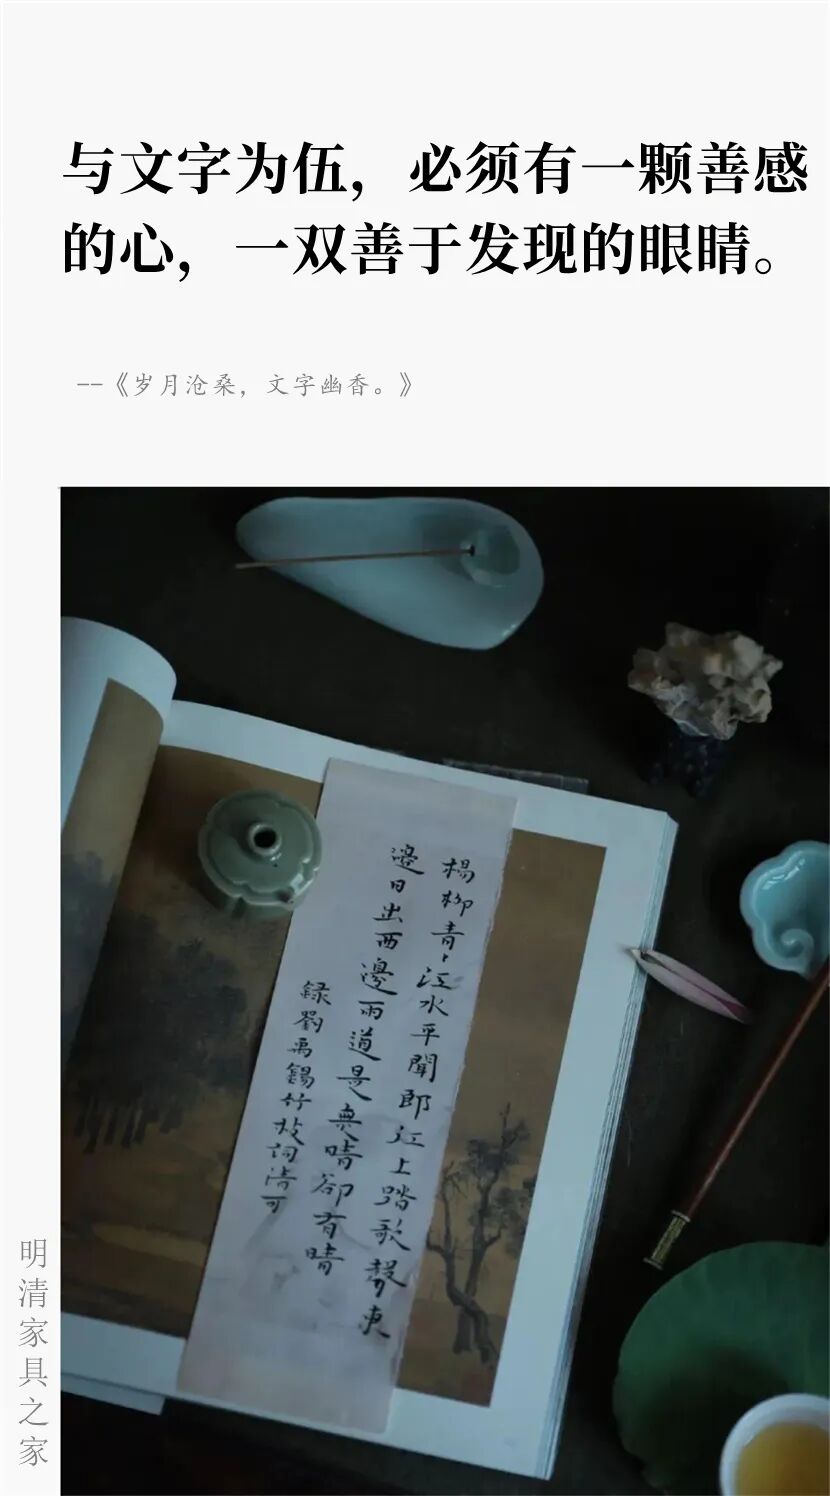 与文字为伍，必须有一颗善感
的心，一双善于发现的眼睛。
--《岁月沧桑，文字幽香。》
楊柳青丶江水平聞郎江上踏歌聲東
邊日出西邊雨道是無晴卻有晴
録劉禹錫竹枝詞清可
明清家具之家